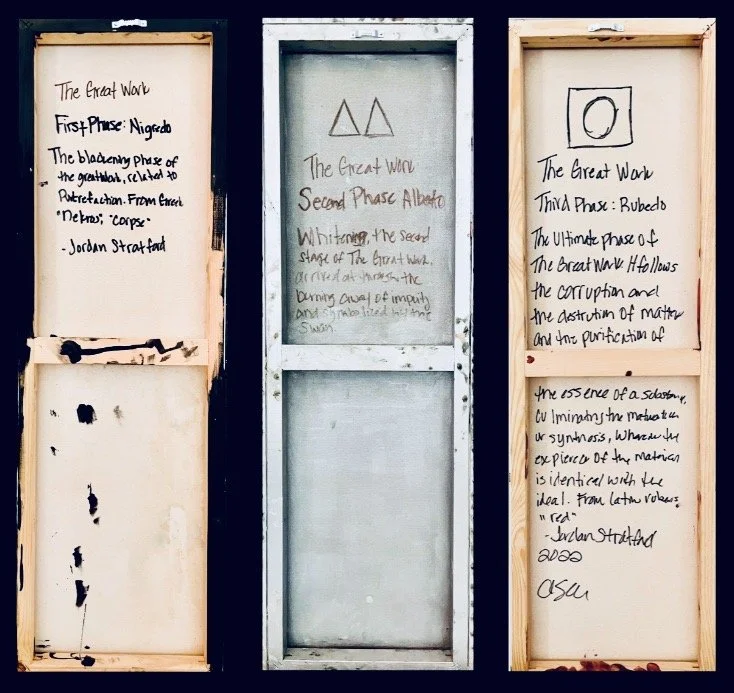 The Great Work
First Phase: Nigredo
The blackening phase of
the greatwork, related to
Putrefaction. From Greek
"Nekros", "corpse"
- Jordan Stratford
The Great Work
Second Phase Albedo
Whitening, the second
stage of The Great Work,
arrived at through the
burning away of impurity
and symbolized by the
Swan.
The Great Work
Third Phase: Rubedo
The Ultimate phase of
The Great Work It follows
the corruption and
the destrution of matter
and the purification of
the essence of a substance,
culminating the
or synthosis, Wherein the
of the material
is identical with the
ideal. From latin rubeus,
"red"
- Jordan Stratford
2022